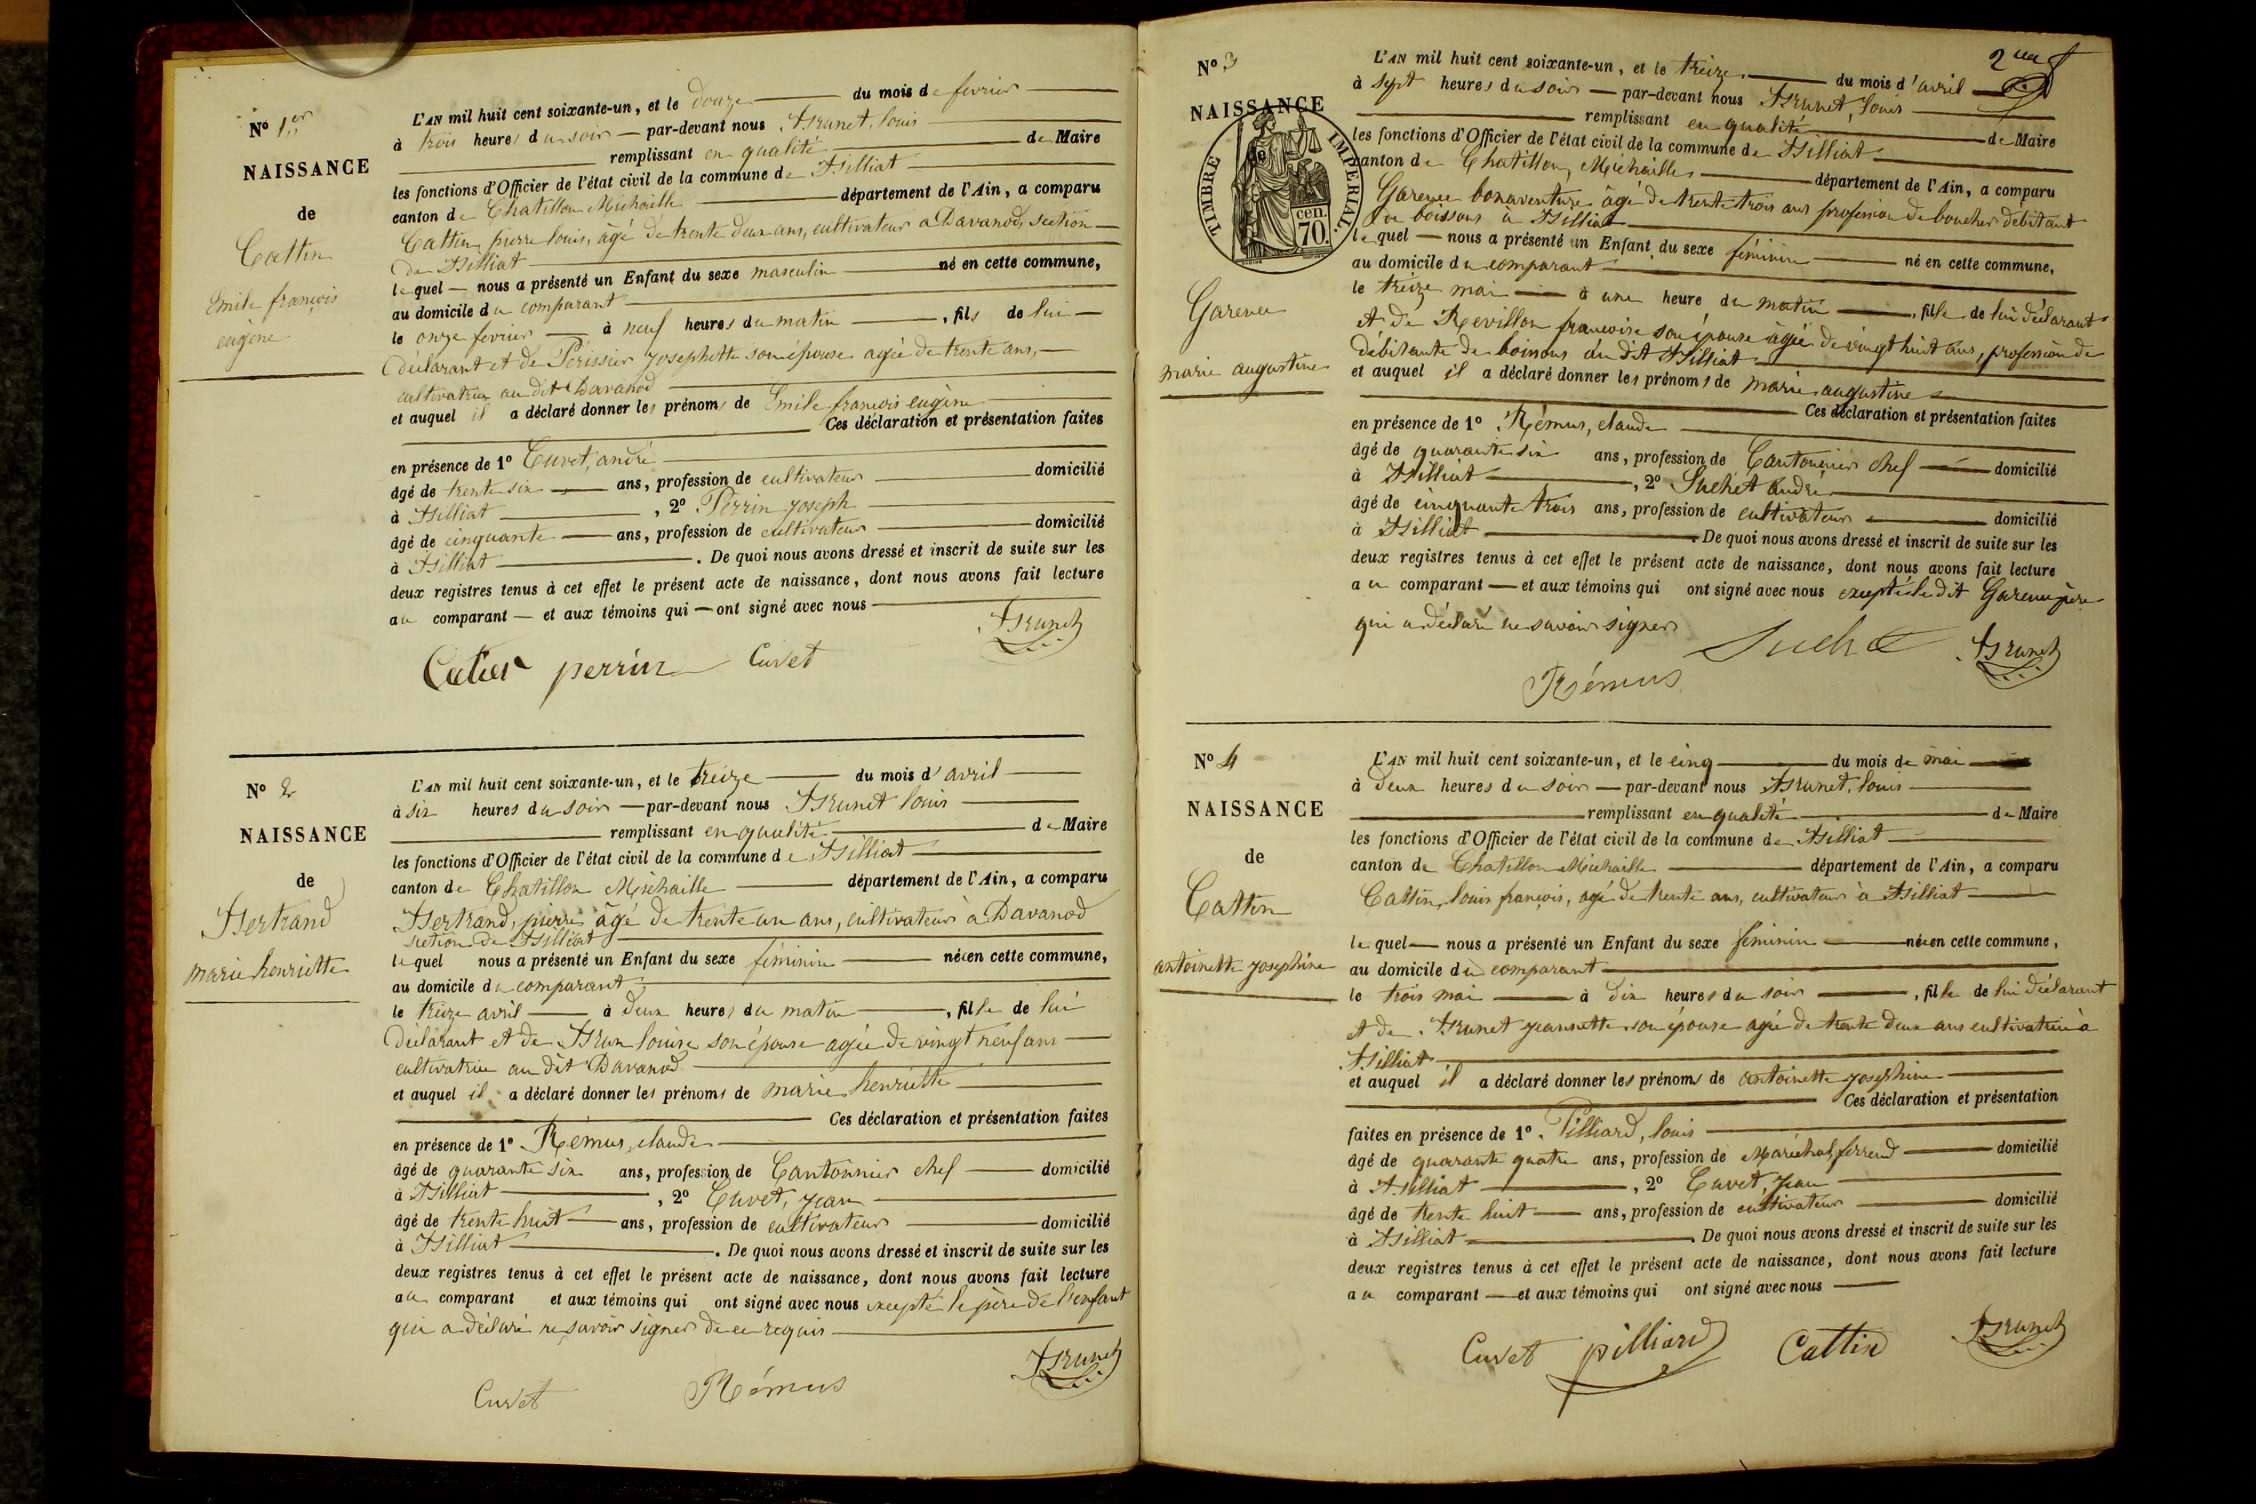 N° 1er
NAISSANCE
de
Cattin
Emile françois
eugène
L'AN mil huit cent soixante-un, et le douze du mois de fevrier
à trois heures du soir par-devant nous Brunet, louis
remplissant en qualité de Maire
les fonctions d'Officier de l'état civil de la commune de Billiat
canton de Chatillon Michaille département de l'Ain, a comparu
Cattin, pierre louis, âgé de trente deux ans, cultivateur a Davanod, section
de Billiat
lequel nous a présenté un Enfant du sexe masculin né en cette commune,
au domicile du comparant
le onze fevrier à neuf heures du matin, fils de lui
déclarant et de Périssier josephette son épouse agée de trente ans,
cultivatrice au dit Davanod
et auquel il a déclaré donner les prénoms de Emile francois eugène
Ces déclaration et présentation faites
en présence de 1° Cuvet, andré
âgé de trente six ans, profession de cultivateur domicilié
à Billiat, 2° Perrin joseph
âgé de cinquante ans, profession de cultivateur domicilié
à Billiat. De quoi nous avons dressé et inscrit de suite sur les
deux registres tenus à cet effet le présent acte de naissance, dont nous avons fait lecture
au comparant et aux témoins qui ont signé avec nous
Brunet
perrin Cuvet
N° 2
NAISSANCE
de
Bertrand
marie henriette
L'AN mil huit cent soixante-un, et le treize du mois d'avril
à six heures du soir par-devant nous Brunet louis
remplissant en qualité de Maire
les fonctions d'Officier de l'état civil de la commune de Billiat
canton de Chatillon Michaille département de l'Ain, a comparu
Bertrand, pierre âgé de trente un ans, cultivateur à Davanod
section de Billiat
lequel nous a présenté un Enfant du sexe féminin née en cette commune,
au domicile du comparant
le treize avril à deux heures du matin, fille de lui
déclarant et de Brun louise son épouse agée de vingt neuf ans
cultivatrice au dit Davanod
et auquel il a déclaré donner les prénoms de marie henriette
Ces déclaration et présentation faites
en présence de 1° Rémus, claude
âgé de quarante six ans, profession de Cantonnier chef domicilié
à Billiat, 2° Cuvet, jean
âgé de trente huit ans, profession de cultivateur domicilié
à Billiat. De quoi nous avons dressé et inscrit de suite sur les
deux registres tenus à cet effet le présent acte de naissance, dont nous avons fait lecture
au comparant et aux témoins qui ont signé avec nous excepté le père de l'enfant
qui a déclaré ne savoir signer de ce requis
Brunet
Cuvet Rémus
2me f
N° 3
NAISSANCE
de
TIMBRE IMPERIAL
cen.
70.
Garenne
marie augustine
L'AN mil huit cent soixante-un, et le treize du mois d'avril
à sept heures du soir par-devant nous Brunet, louis
remplissant en qualité de Maire
les fonctions d'Officier de l'état civil de la commune de Billiat
canton de Chatillon, Michaille département de l'Ain, a comparu
Garenne bonaventure âgé de trente trois ans profession de boucher débitant
de boissons à Billiat
lequel nous a présenté un Enfant du sexe féminin né en cette commune,
au domicile du comparant
le treize mai à une heure du matin, fille de lui déclarant
et de Revillon francoise son épouse âgée de vingt huit ans, profession de
débitante de boissons au dit Billiat
et auquel il a déclaré donner les prénoms de marie augustine
Ces déclaration et présentation faites
en présence de 1° Rémus, claude
âgé de quarante six ans, profession de Cantonnier chef domicilié
à Billiat, 2° Suchet andré
âgé de cinquante trois ans, profession de cultivateur domicilié
à Billiat. De quoi nous avons dressé et inscrit de suite sur les
deux registres tenus à cet effet le présent acte de naissance, dont nous avons fait lecture
au comparant et aux témoins qui ont signé avec nous excepté le dit Garenne père
qui a déclaré ne savoir signer
Suchet Brunet
Rémus
N° 4
NAISSANCE
de
Cattin
antoinette josephine
L'AN mil huit cent soixante-un, et le cinq du mois de mai
à deux heures du soir par-devant nous Brunet, louis
remplissant en qualité de Maire
les fonctions d'Officier de l'état civil de la commune de Billiat
canton de Chatillon Michaille département de l'Ain, a comparu
Cattin, louis françois, agé de trente ans, cultivateur à Billiat
lequel nous a présenté un Enfant du sexe féminin née en cette commune,
au domicile du comparant
le trois mai à dix heures du soir, fille de lui déclarant
et de Brunet jeannette son épouse agée de trente deux ans cultivatrice à
Billiat
et auquel il a déclaré donner les prénoms de antoinette josephine
Ces déclaration et présentation
faites en présence de 1° Pilliard, louis
âgé de quarante quatre ans, profession de Maréchal ferrend domicilié
à Billiat, 2° Cuvet, jean
âgé de trente huit ans, profession de cultivateur domicilié
à Billiat. De quoi nous avons dressé et inscrit de suite sur les
deux registres tenus à cet effet le présent acte de naissance, dont nous avons fait lecture
au comparant et aux témoins qui ont signé avec nous
Cuvet pilliard Cattin Brunet